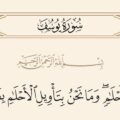 سُورَةُ يُوسُفَ
بِسْمِ اللَّهِ الرَّحْمَٰنِ الرَّحِيمِ
حْلَٰمٍ ۖ وَمَا نَحْنُ بِتَأْوِيلِ ٱلْأَحْلَٰمِ